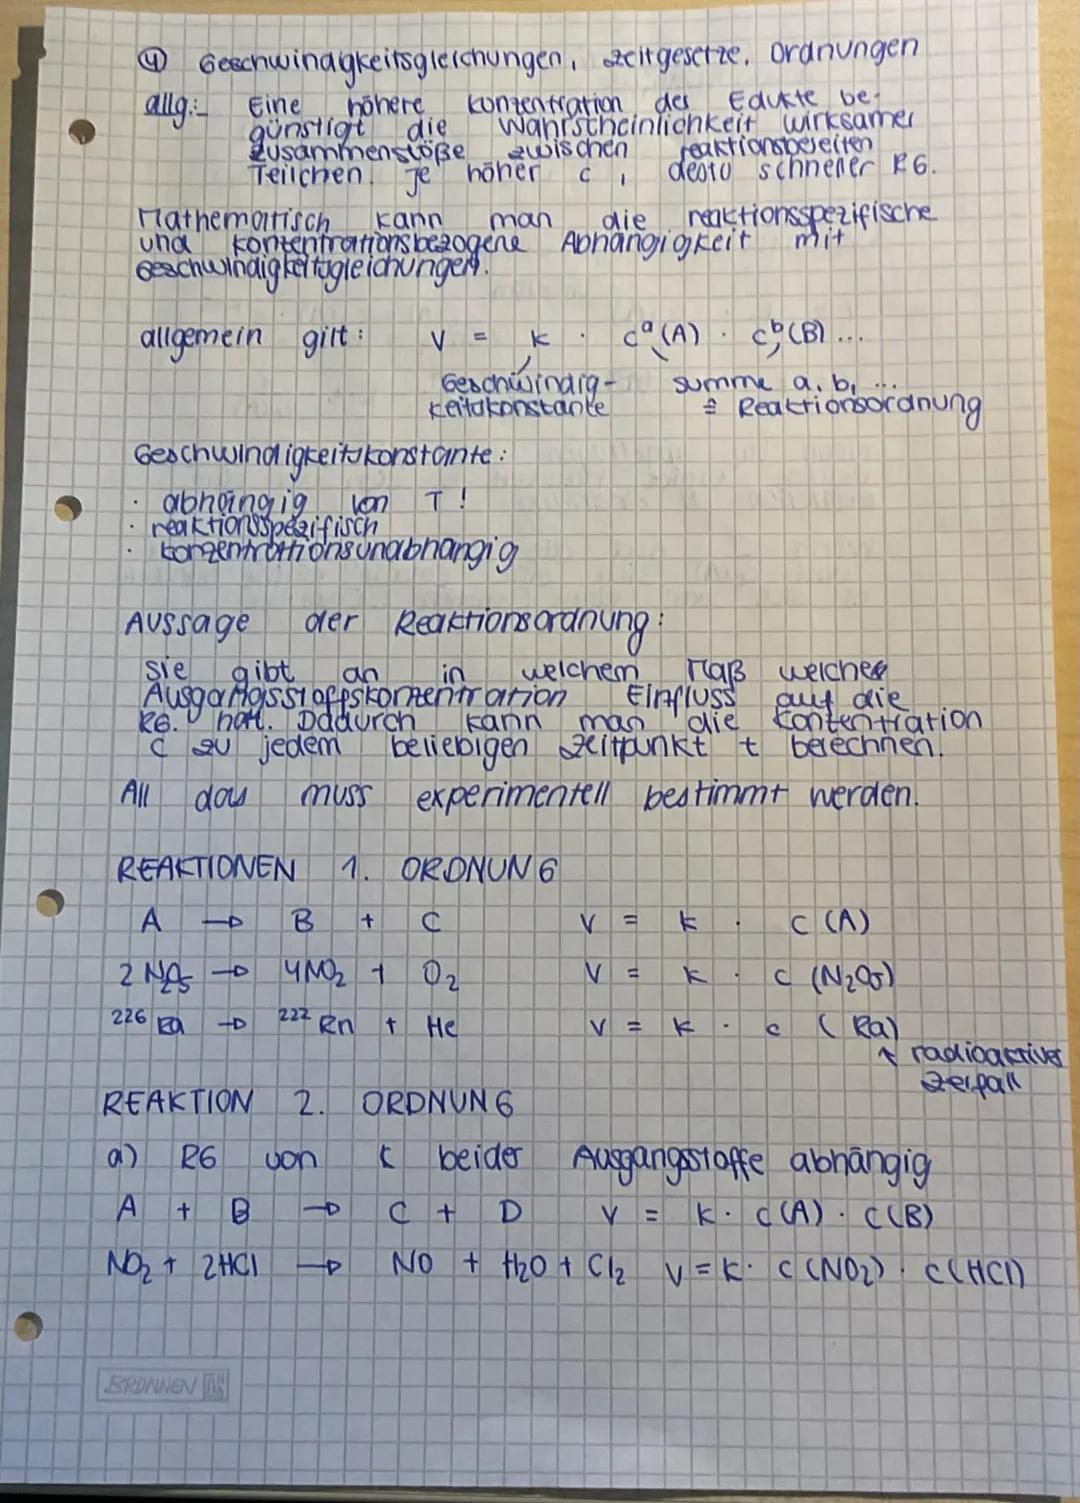 ④ Geschwindigkeitsgleichungen, Zeitgesetze, Ordnungen
allg.: Eine höhere Konzentration der Edukte be-
günstigt die Wahrscheinlichkeit wirksamer
Zusammenstöße zwischen reaktionsbereiten
Teilchen. Je höher c, desto schneller RG.
Mathematisch kann man die reaktionsspezifische
und konzentrationsbezogene Abhängigkeit mit
Geschwindigkeitsgleichungen.
allgemein gilt: v = k · cᵃ(A) · cᵇ(B) ...
Geschwindig- Summe a, b, ...
keitskonstante ≙ Reaktionsordnung
Geschwindigkeitskonstante:
· abhängig von T!
· reaktionsspezifisch
· konzentrationsunabhängig
Aussage der Reaktionsordnung:
Sie gibt an in welchem Maß welche
Ausgangsstoffskonzentration Einfluss auf die
RG. hat. Dadurch kann man die Konzentration
c zu jedem beliebigen Zeitpunkt t berechnen.
All das muss experimentell bestimmt werden.
REAKTIONEN 1. ORDNUNG
A → B + C v = k · c (A)
2 N₂O₅ → 4NO₂ + O₂ v = k · c (N₂O₅)
²²⁶Ra → ²²²Rn + He v = k · c (Ra)
↑ radioaktiver
Zerfall
REAKTION 2. ORDNUNG
a) RG von c beider Ausgangsstoffe abhängig
A + B → C + D v = k · c(A) · c(B)
NO₂ + 2HCl → NO + H₂O + Cl₂ v = k · c(NO₂) · c(HCl)
BRUNNEN